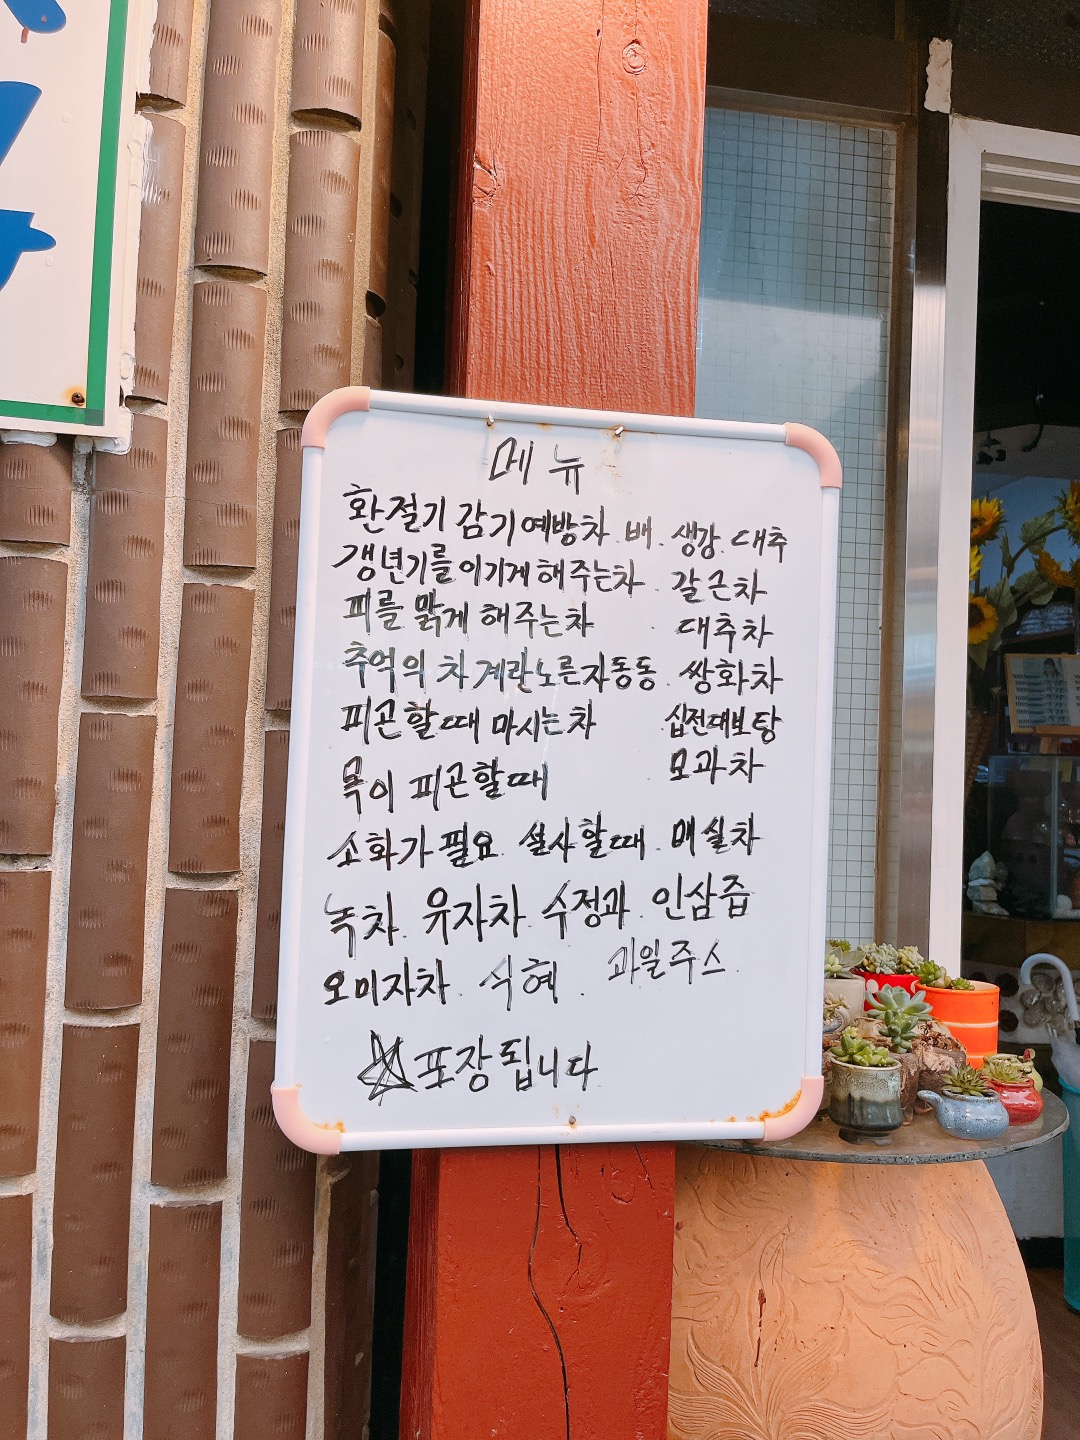 메뉴
환절기 감기예방차. 배. 생강. 대추
갱년기를 이기게 해주는차. 갈근차
피를 맑게 해주는차 . 대추차
추억의 차 계란노른자동동. 쌍화차
피곤할때 마시는차 십전대보탕
목이 피곤할때 . 모과차
소화가 필요. 설사할때. 매실차
녹차. 유자차. 수정과. 인삼즙
오미자차. 식혜. 과일주스.
☆포장됩니다.